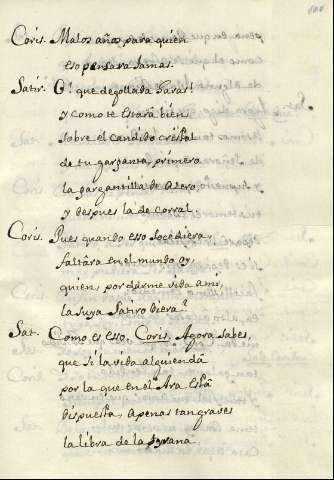 Coris. Malos años para quien
eso pensara Jamas.
Satir. O! que degollada Faras!
y como te Estará bien,
sobre el candido cristal
de tu garganta, primero
la gargantilla de Azero,
y despues la de corral.
Coris. Pues quando esso sucediera,
faltára en el mundo oy
quien, por darme vida a mi,
la suya Satiro diera?
Sat. Como es esso, Coris. Agora sabes,
que si la vida alguien dá
por la que en el Ara Está
dispuesta, apenas tan graves
la libra de la